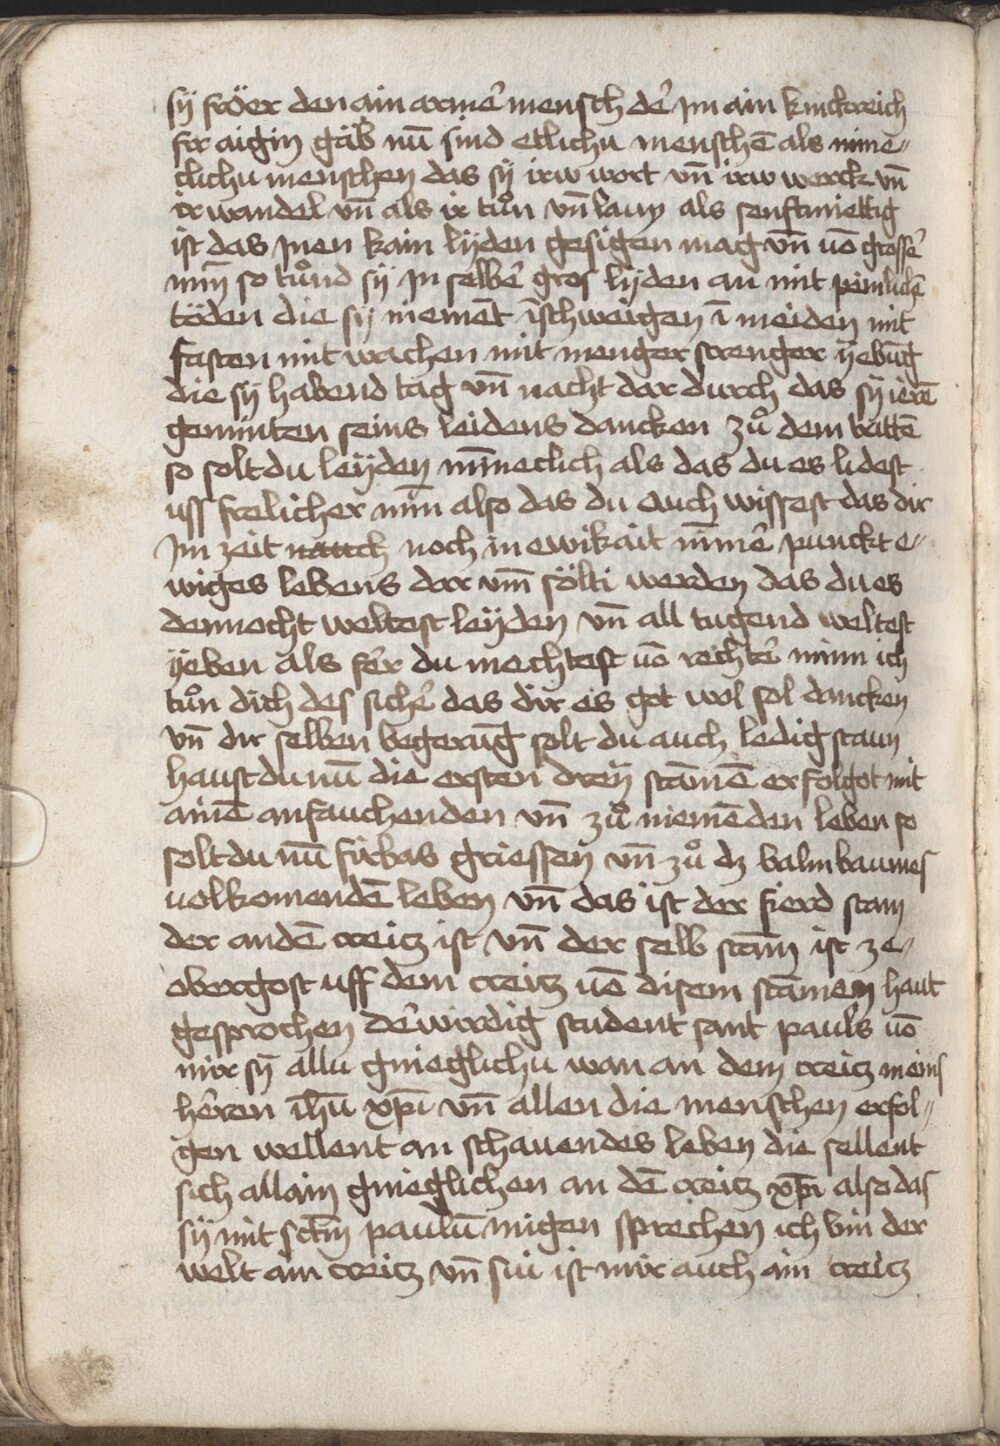 sÿ fröer den ain armē mensch dē Jm ain kinckreich
fir aigin gäb nū sind etlichu menschē als mine⸗
clichu menschen das sÿ irw wort vn̄ irw werck vn̄
ir wandel vn̄ als ir tůn vn̄ laun als senftmiettig
ist das Jnen kain lÿden gesigen mag vn̄ uō grossē
min̄ so tůnd sÿ Jn selbē gros lÿden an mit peinlichē
töden die sÿ niemēt īschweigen ī meiden mit
fasten mit wachen mit menger strenger ÿebūg
die sÿ habend tag vn̄ nacht dar durch das sÿ ierē
geminten seins leidens dancken zů dem battē
so solt du leÿden mīneclich als das du es lidest
uss frelicher min̄ also das du auch wissest das dir
Jm zeit noch in ewikait nīmē punckt e⸗
wiges lebens dar vm̄ sölti werden das du es
dennocht weltest leÿden vn̄ all tugend weltest
ÿeben als fēr du mechtest uō rechtē minn ich
tůn dich des sichē das dir es got wol sol dancken
vn̄ dir selben begerūg solt du auch ledig staun
haust du nū die ersten dreÿ stāmē erfolgot mit
ainē anfauchenden vn̄ zů niemēden leben so
solt du nū fürbas griessen vn̄ zů dz balmbaumes
uolkomendē leben vn̄ das ist der fierd stam
der andē creitz ist vn̄ der selb stam̄ ist ze⸗
obergost uff dem creitz uō disem stāmen haut
gesprochen dē wirdig student sant pauls uō
mir sÿ allu gnieglichu wan an dem creitz meins
hēren ih̄u xp̄i vn̄ allen die menschen erfol⸗
gen wellent an schauendes leben die sellent
sich allain gnieglichen an dē creitz xp̄i also das
sÿ mit sctm̄ paulū migen sprechen ich bin der
welt ain creitz vn̄ siu ist mir auch ain creitz